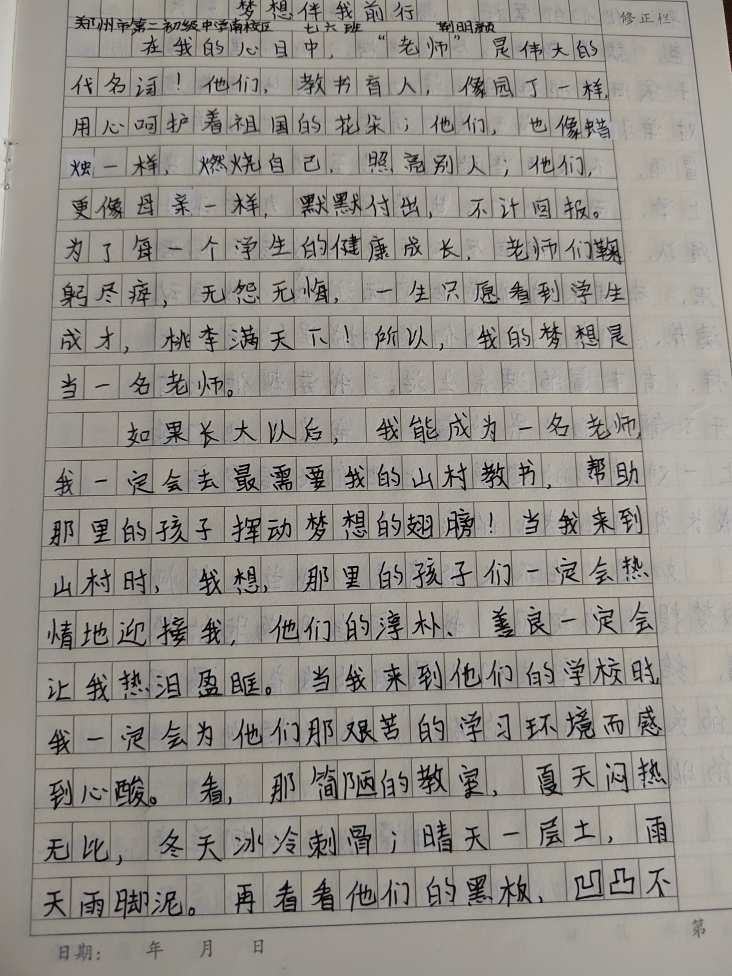 梦想伴我前行
修正栏
郑州市第二初级中学南校区 七六班 荆明颢
在我的心目中，“老师”是伟大的
代名词！他们，教书育人，像园丁一样，
用心呵护着祖国的花朵；他们，也像蜡
烛一样，燃烧自己，照亮别人；他们，
更像母亲一样，默默付出，不计回报。
为了每一个学生的健康成长，老师们鞠
躬尽瘁，无怨无悔，一生只愿看到学生
成才，桃李满天下！所以，我的梦想是
当一名老师。
如果长大以后，我能成为一名老师，
我一定会去最需要我的山村教书，帮助
那里的孩子挥动梦想的翅膀！当我来到
山村时，我想，那里的孩子们一定会热
情地迎接我，他们的淳朴、善良一定会
让我热泪盈眶。当我来到他们的学校时，
我一定会为他们那艰苦的学习环境而感
到心酸。看，那简陋的教室，夏天闷热
无比，冬天冰冷刺骨；晴天一层土，雨
天雨脚泥。再看看他们的黑板，凹凸不
第
日期： 年 月 日